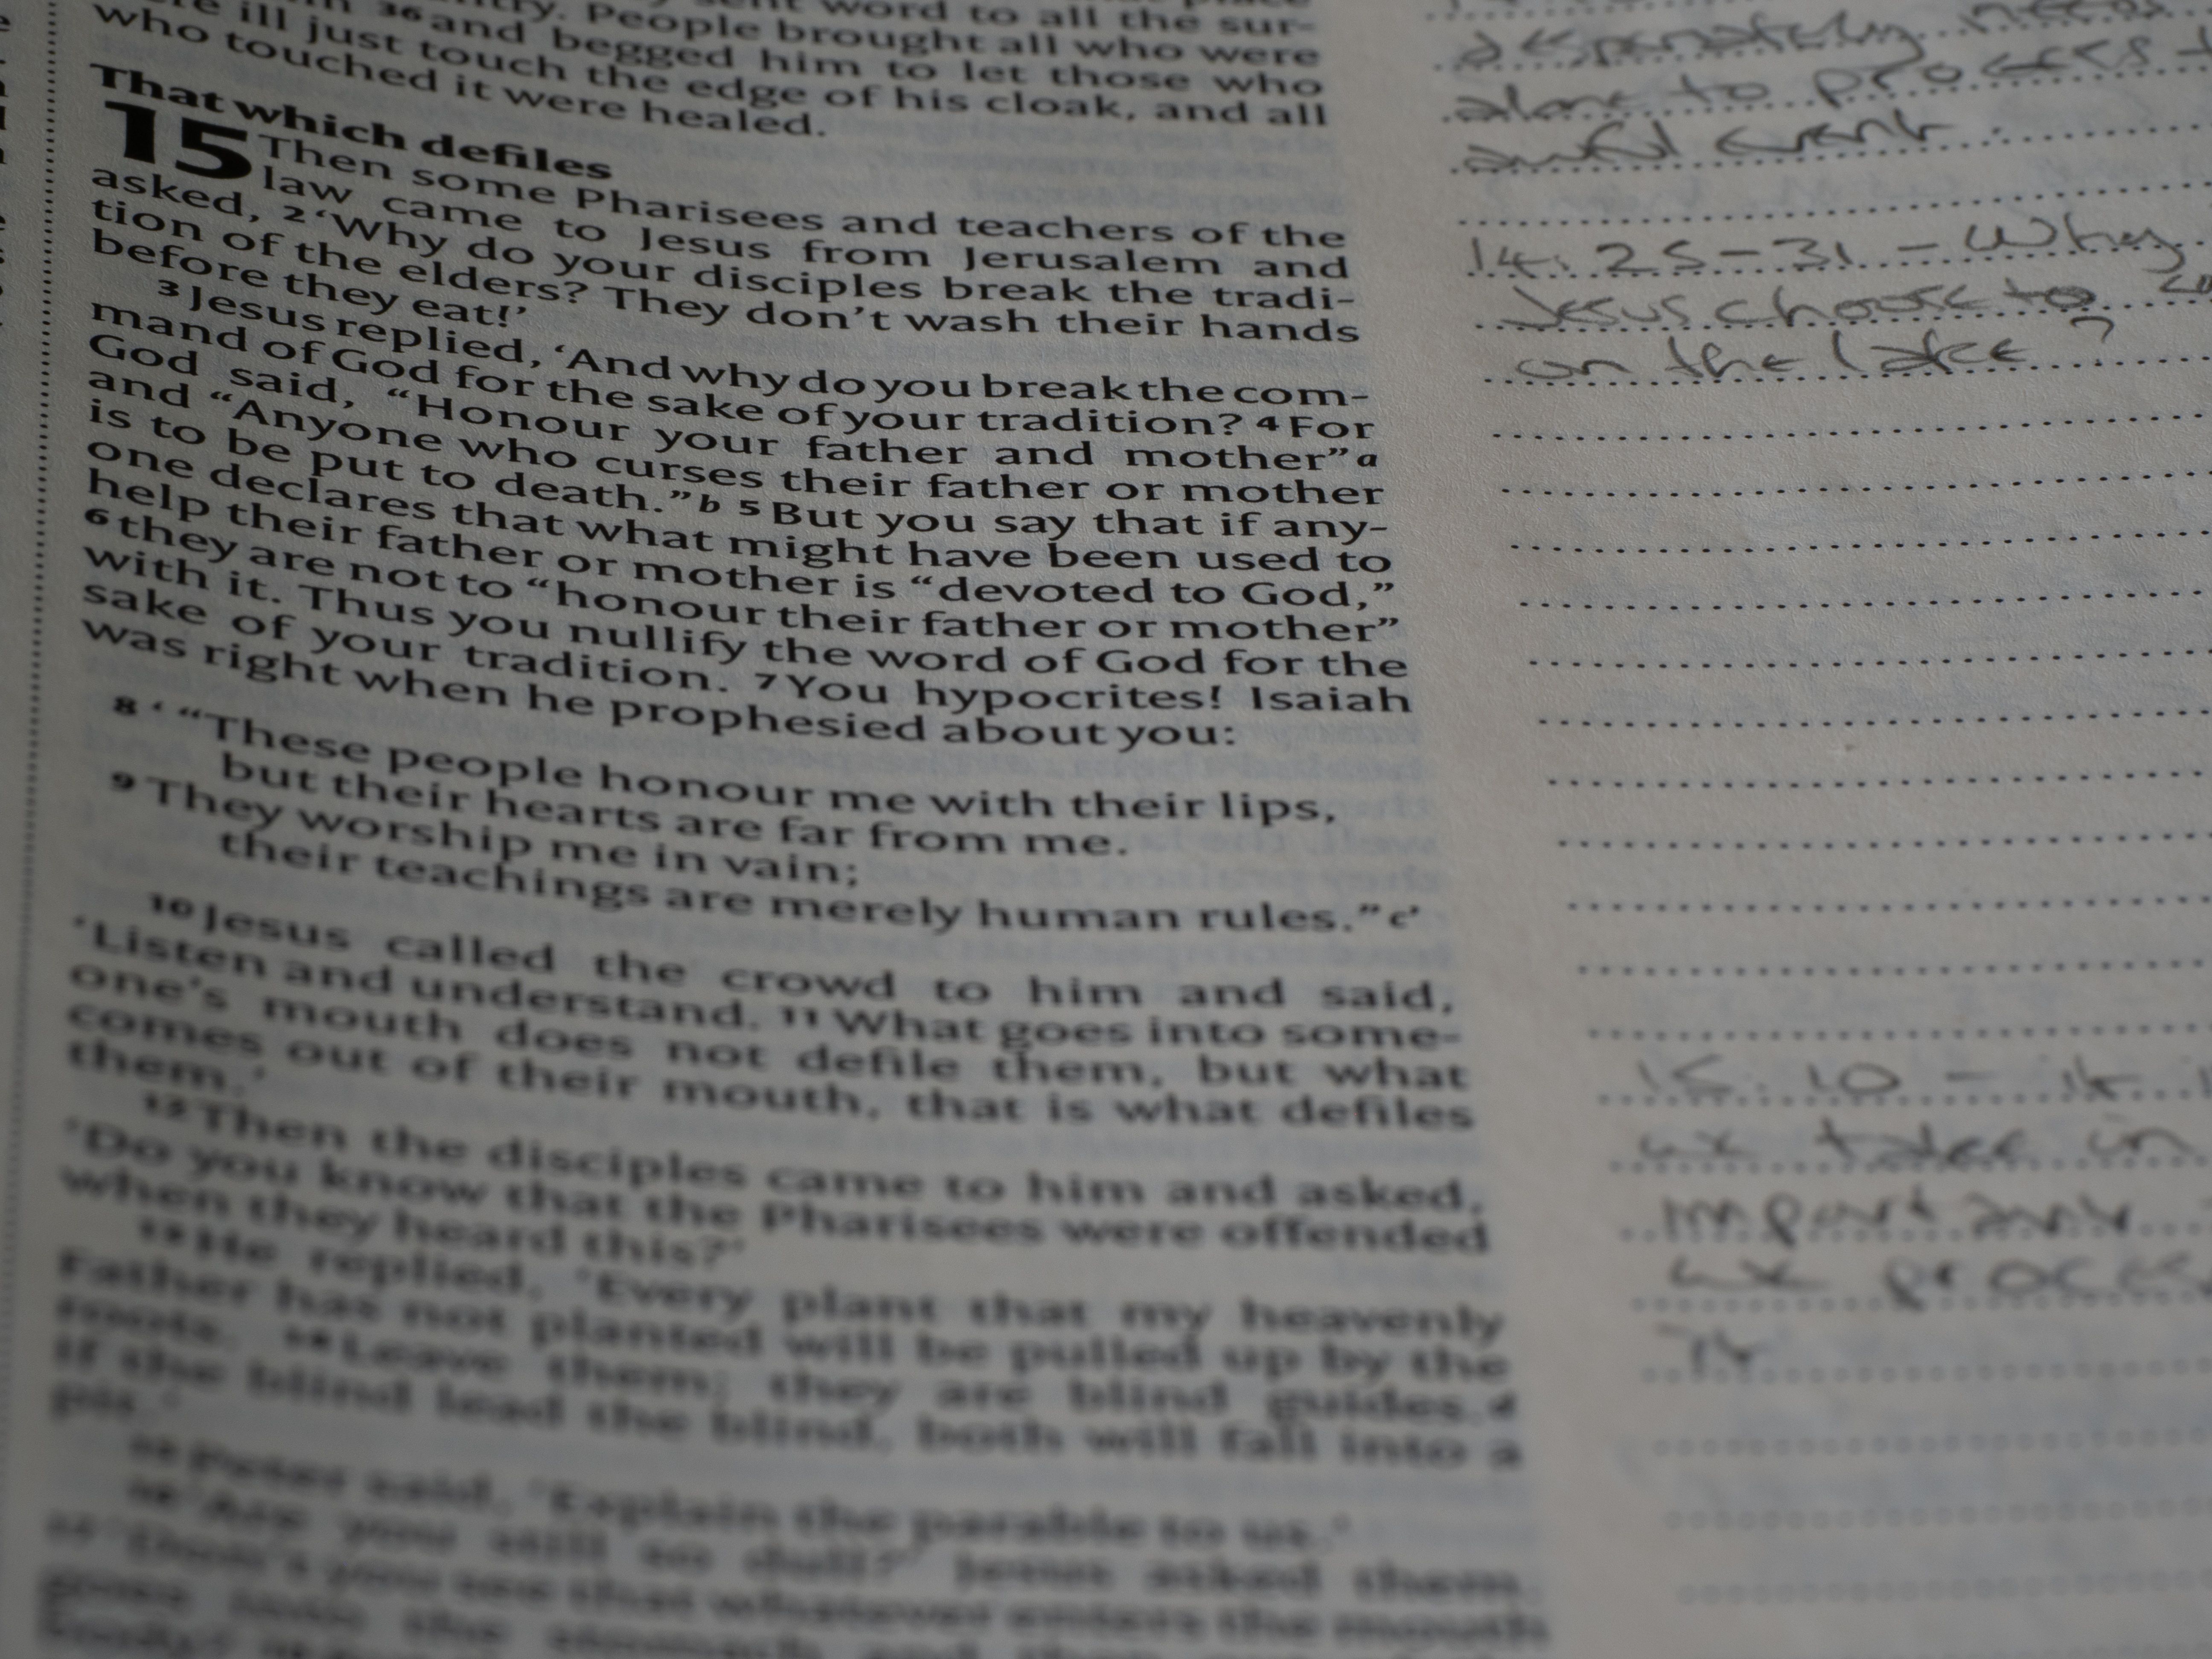 sent word to all the sur-
36 and begged him to let those who
ill just touch the edge of his cloak, and all
who touched it were healed.
That which defiles
15 Then some Pharisees and teachers of the
law came to Jesus from Jerusalem and
asked, 2 ‘Why do your disciples break the tradi-
tion of the elders? They don’t wash their hands
before they eat!’
3 Jesus replied, ‘And why do you break the com-
mand of God for the sake of your tradition? 4 For
God said, “Honour your father and mother” a
and “Anyone who curses their father or mother
is to be put to death.” b 5 But you say that if any-
one declares that what might have been used to
help their father or mother is “devoted to God,”
6 they are not to “honour their father or mother”
with it. Thus you nullify the word of God for the
sake of your tradition. 7 You hypocrites! Isaiah
was right when he prophesied about you:
8 ‘ “These people honour me with their lips,
but their hearts are far from me.
9 They worship me in vain;
their teachings are merely human rules.” c’
10 Jesus called the crowd to him and said,
‘Listen and understand. 11 What goes into some-
one’s mouth does not defile them, but what
comes out of their mouth, that is what defiles
them.’
12 Then the disciples came to him and asked,
‘Do you know that the Pharisees were offended
when they heard this?’
13 He replied, ‘Every plant that my heavenly
Father has not planted will be pulled up by the
roots. 14 Leave them; they are blind guides. d
If the blind lead the blind, both will fall into a
pit.’
15 Peter said, ‘Explain the parable to us.’
16 ‘Are you still so dull?’ Jesus asked them.
17 ‘Don’t you see that whatever enters the mouth
goes into the stomach and then
desperately needs
alone to process
awful event.
14. 25-31 - Why
Jesus choose to
on the lake?
15. 10 - it
we take in
important
we process
it